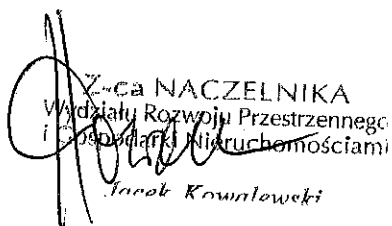 Z-ca NACZELNIKA
Wydziału Rozwoju Przestrzennego
i Gospodarki Nieruchomościami
Jacek Kowalewski